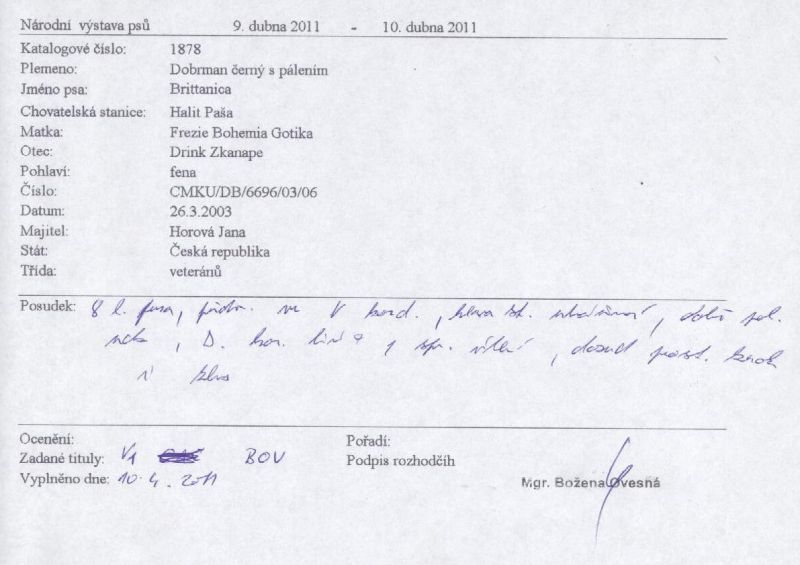 Národní výstava psů 9. dubna 2011 - 10. dubna 2011
Katalogové číslo: 1878
Plemeno: Dobrman černý s pálením
Jméno psa: Brittanica
Chovatelská stanice: Halit Paša
Matka: Frezie Bohemia Gotika
Otec: Drink Zkanape
Pohlaví: fena
Číslo: CMKU/DB/6696/03/06
Datum: 26.3.2003
Majitel: Horová Jana
Stát: Česká republika
Třída: veteránů
Posudek: 8 l. fena, v kond., hlava
D. hor. linie
Ocenění: Pořadí:
Zadané tituly: V1 BOV Podpis rozhodčíh
Vyplněno dne: 10.4. 2011 Mgr. Božena Ovesná